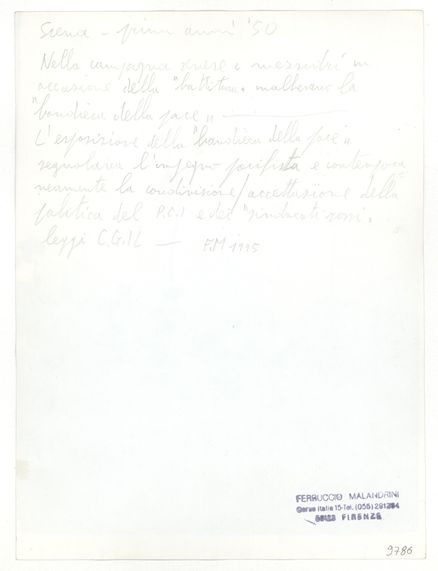 Siena - primi anni '50
Nella campagna senese i mezzadri in
occasione della "battitura" inalberano la
"bandiera della pace"
L'esposizione della "bandiera della pace"
segnalava l'impegno pacifista e contempora
neamente la condivisione/accettazione della
politica del P.C.I e dei "sindacati rossi"
leggi C.G.I.L — FM 1995
FERRUCCIO MALANDRINI
Corso Italia 15-Tel. (055)
50123 FIRENZE
9786